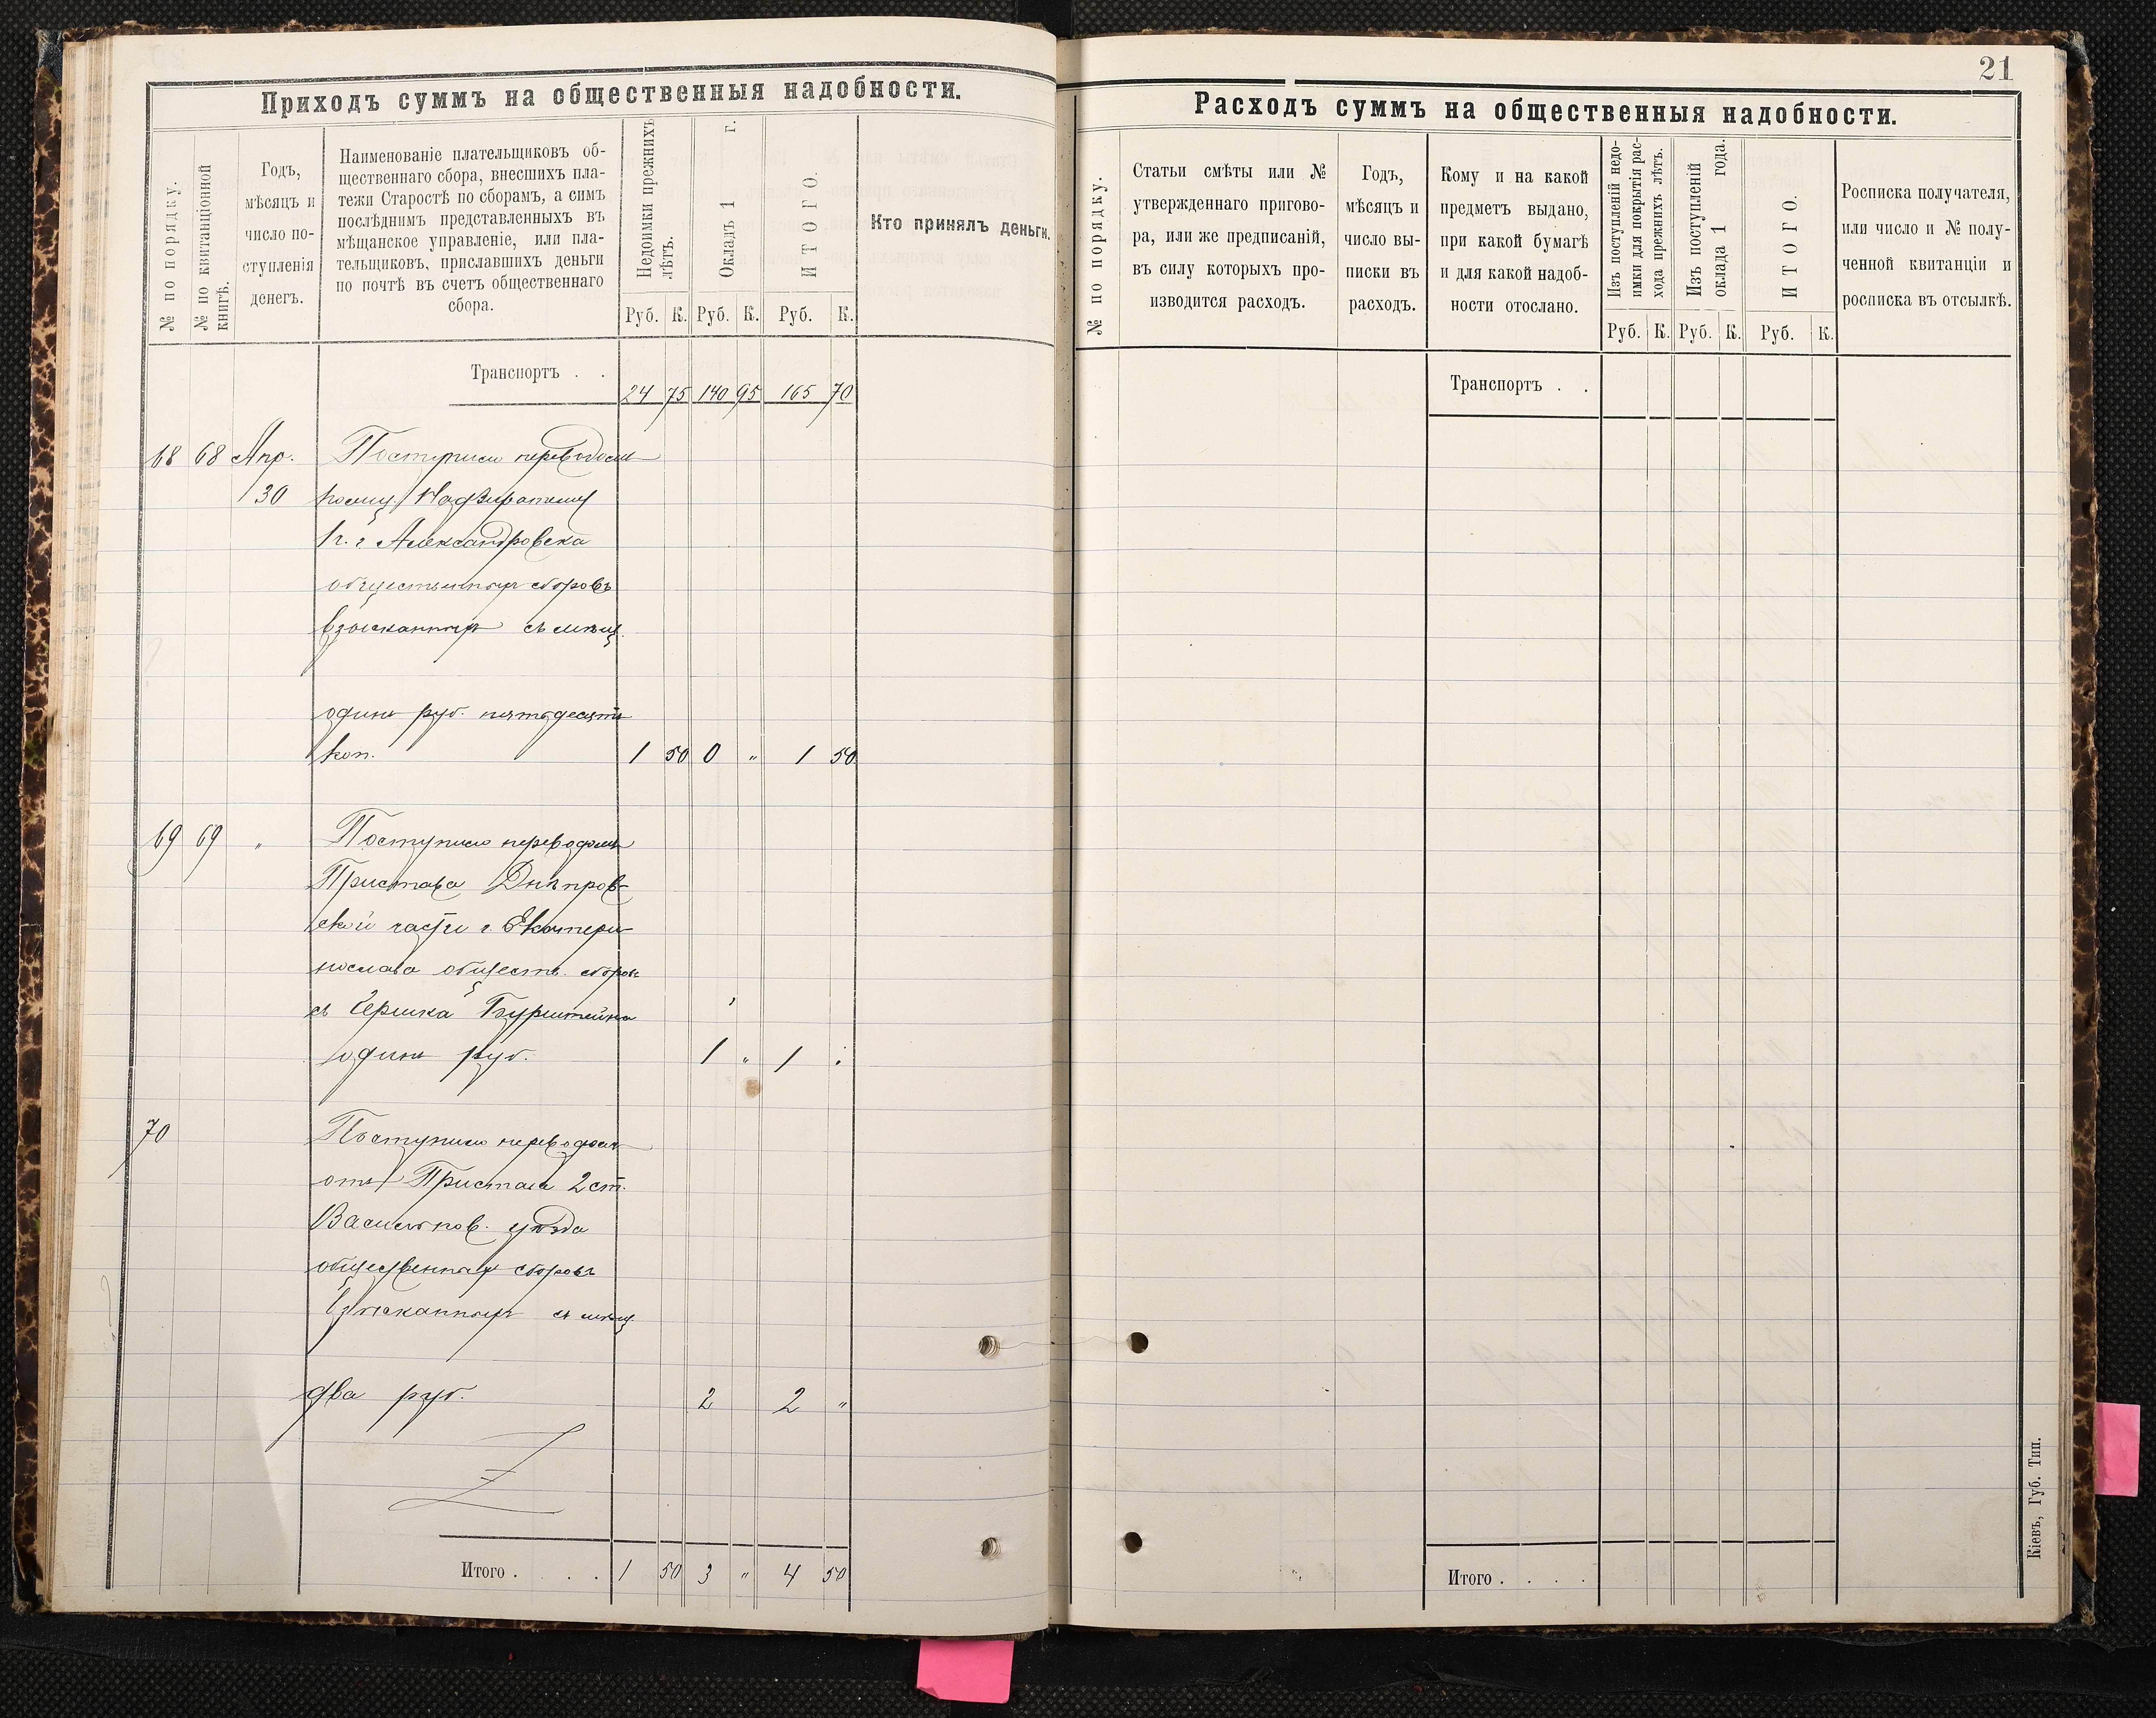 Приходъ суммъ на общественныя надобности.
№ по порядку.
№ по квитанціонной
книгѣ.
Годъ,
мѣсяцъ и
число по-
ступленія
денегъ.
Наименованіе плательщиковъ об-
щественнаго сбора, внесшихъ пла-
тежи Старостѣ по сборамъ, а симъ
послѣднимъ представленныхъ въ
мѣщанское управленіе, или пла-
тельщиковъ, приславшихъ деньги
по почтѣ въ счетъ общественнаго
сбора.
Недоимки прежнихъ
лѣтъ.
Окладъ 1 г.
ИТОГО.
Кто принялъ деньги.
Руб. К. Руб. К. Руб. К.
Транспортъ . . 24 75 140 95 165 70
68 68 Апр. Поступило переводомъ
30 Надзирателя
г. Александровска
общественныхъ сборовъ
взысканныхъ съ мѣщ.
одинъ руб. пятьдесятъ
коп. 1 50 0 " 1 50
69 69 " Поступило переводомъ
Пристава Днѣпров-
ской части г. Екатери-
нослава обществ. сборовъ
съ Гершка Бурштейна
одинъ руб. 1 " 1 "
70 Поступило переводомъ
отъ Пристава 2 ст.
Васильков. уѣзда
общественныхъ сборовъ
взысканныхъ съ мѣщ.
два руб. 2 2 "
Итого . . . . 1 50 3 " 4 50
21
Расходъ суммъ на общественныя надобности.
№ по порядку.
Статьи смѣты или №
утвержденнаго пригово-
ра, или же предписаній,
въ силу которыхъ про-
изводится расходъ.
Годъ,
мѣсяцъ и
число вы-
писки въ
расходъ.
Кому и на какой
предметъ выдано,
при какой бумагѣ
и для какой надоб-
ности отослано.
Изъ поступленій недо-
имки для покрытія рас-
хода прежнихъ лѣтъ.
Изъ поступленій
оклада 1 года.
ИТОГО.
Росписка получателя,
или число и № полу-
ченной квитанціи и
росписка въ отсылкѣ.
Руб. К. Руб. К. Руб. К.
Транспортъ . .
Итого . . . .
Кіевъ, Губ. Тип.